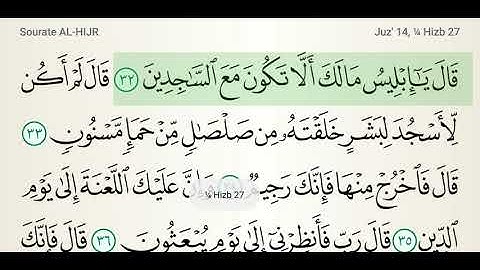 Sourate AL-HIJR Juz' 14, ¼ Hizb 27
قَالَ يَٰٓإِبْلِيسُ مَا لَكَ أَلَّا تَكُونَ مَعَ ٱلسَّٰجِدِينَ ٣٢ قَالَ لَمْ أَكُن
لِّأَسْجُدَ لِبَشَرٍ خَلَقْتَهُۥ مِن صَلْصَٰلٍ مِّنْ حَمَإٍ مَّسْنُونٍ ٣٣
قَالَ فَٱخْرُجْ مِنْهَا فَإِنَّكَ رَجِيمٌ وَإِنَّ عَلَيْكَ ٱللَّعْنَةَ إِلَىٰ يَوْمِ
¼ Hizb 27
ٱلدِّينِ ٣٥ قَالَ رَبِّ فَأَنظِرْنِىٓ إِلَىٰ يَوْمِ يُبْعَثُونَ ٣٦ قَالَ فَإِنَّكَ